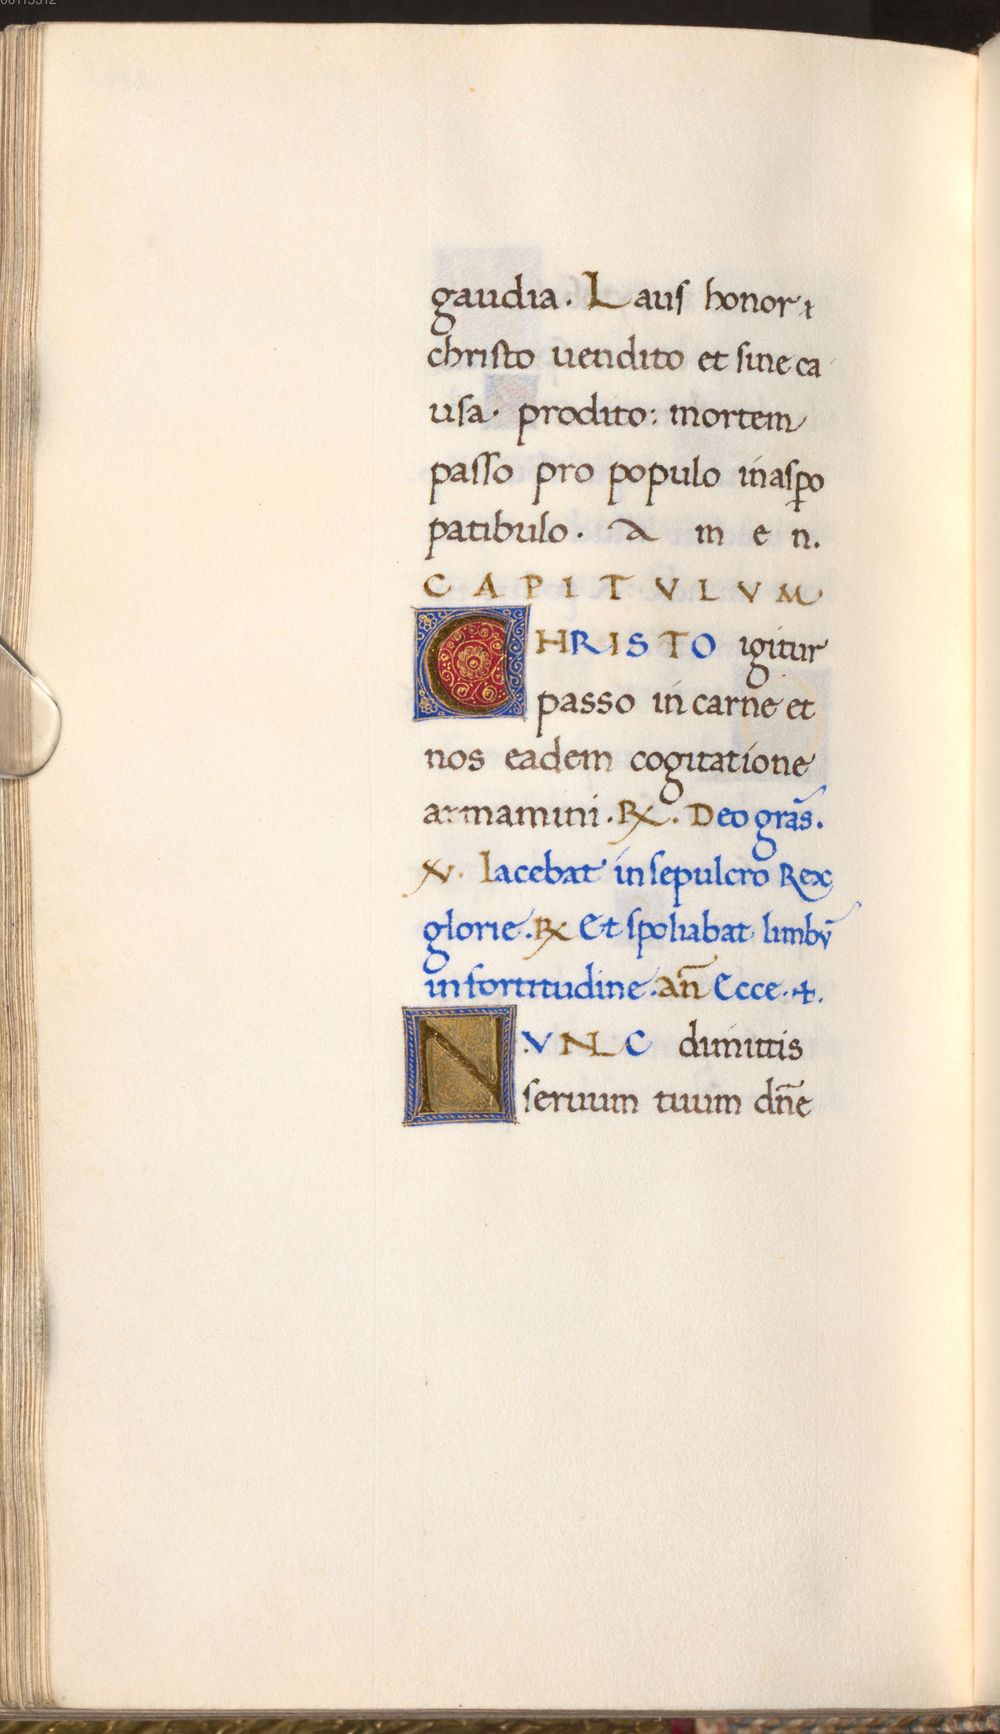 gaudia. Laus honor ⁊
christo uendito et sine ca
usa. prodito: mortem
passo pro populo in aspo
patibulo. A m e n.
CAPITVLVM
CHRISTO igitur
passo in carne et
nos eadem cogitatione
armamini. ℞. Deo grās.
℣. Iacebat in sepulcro Rex
glorie. ℞ Et spoliabat limbv̄
in fortitudine. an̄ Ecce. +.
NVNC dimittis
seruum tuum dn̄e